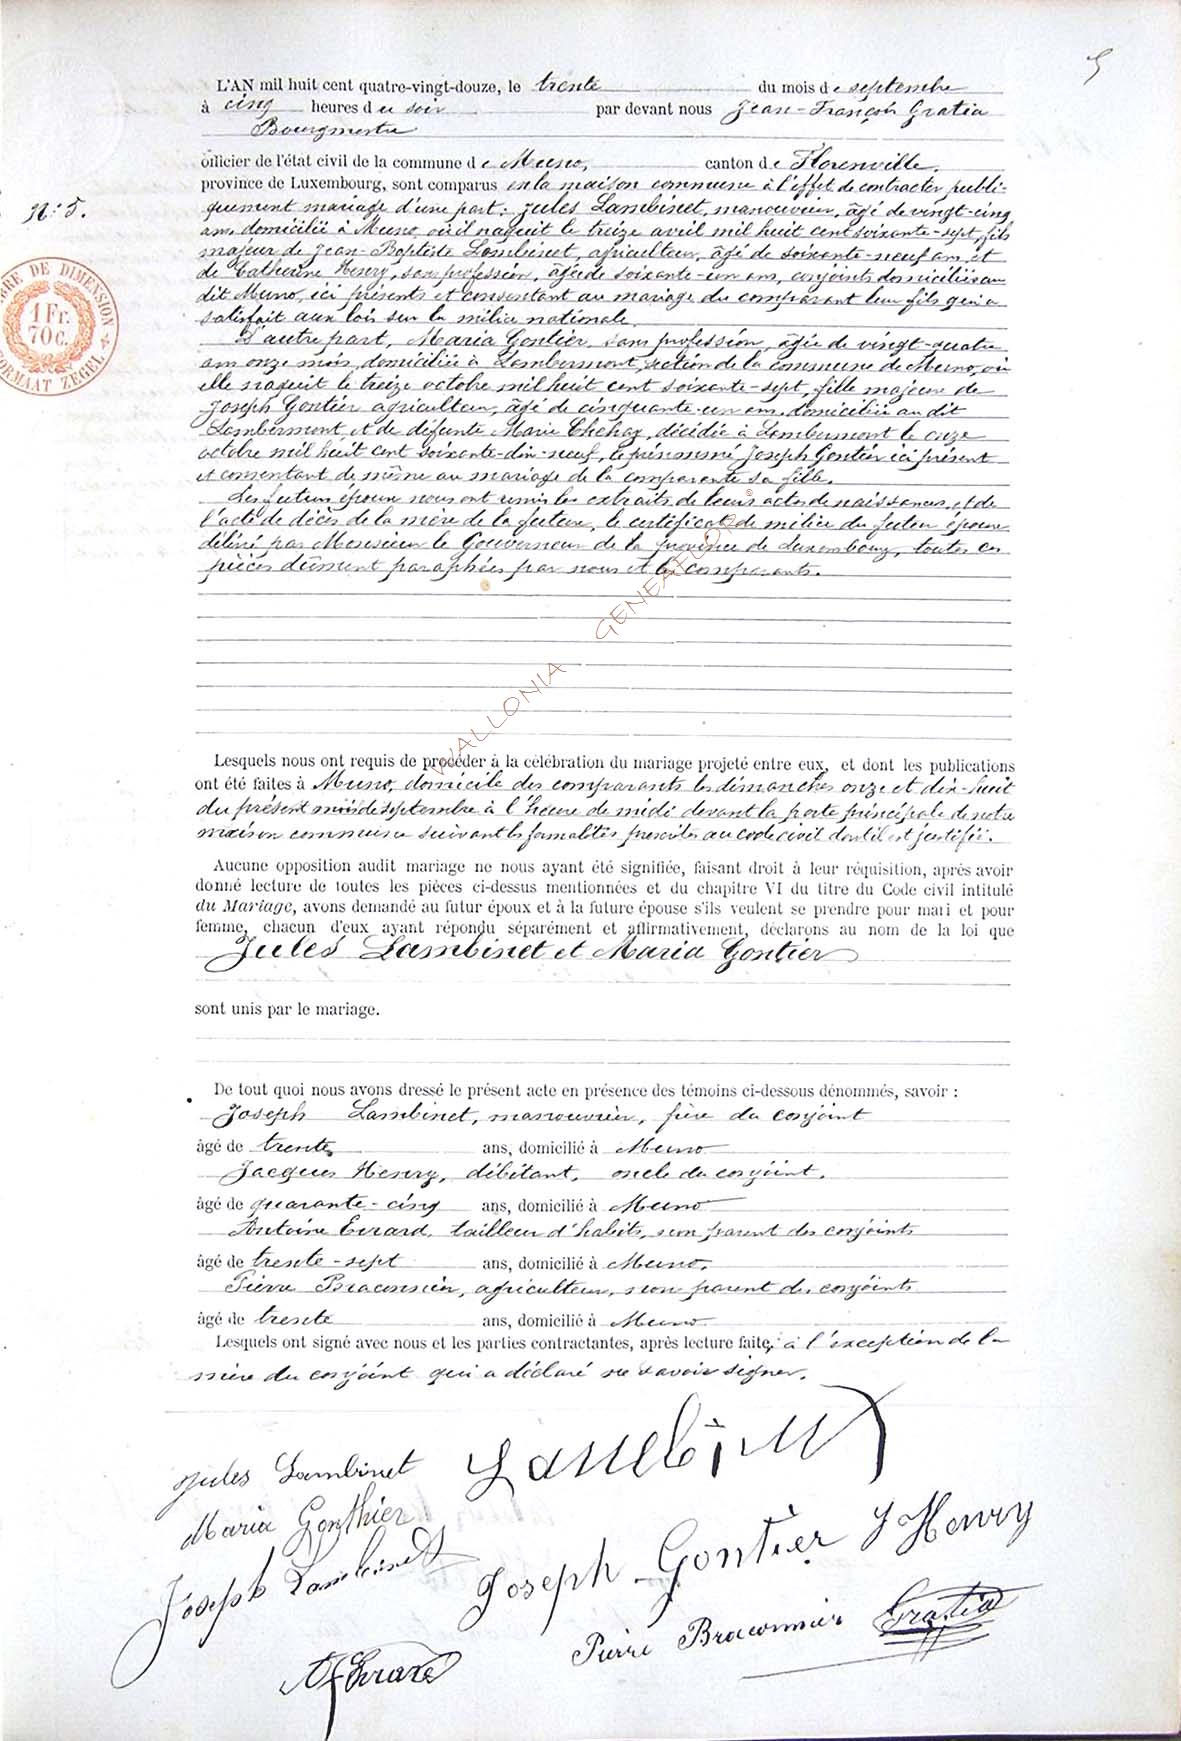 5
L'AN mil huit cent quatre-vingt-douze, le trente du mois de septembre
à cinq heures du soir par devant nous Jean-François Gratia
Bourgmestre
officier de l'état civil de la commune de Muno, canton de Florenville,
province de Luxembourg, sont comparus en la maison commune à l'effet de contracter publi-
N: 5.
quement mariage d'une part: Jules Lambinet, manouvrier, âgé de vingt-cinq
ans domicilié à Muno, où il naquit le treize avril mil huit cent soixante-sept, fils
majeur de Jean-Baptiste Lambinet, agriculteur, âgé de soixante-neuf ans et
de Catherine Henry, sans profession, âgée de soixante-un ans, conjoints domiciliés au
dit Muno, ici présents et consentant au mariage du comparant leur fils qui a
satisfait aux lois sur la milice nationale.
TIMBRE DE DIMENSION
1 Fr.
70 C.
FORMAAT ZEGEL
D'autre part, Maria Gontier, sans profession, âgée de vingt-quatre
ans onze mois, domiciliée à Lambermont, section de la commune de Muno, où
elle naquit le treize octobre mil huit cent soixante-sept, fille majeure de
Joseph Gontier agriculteur, âgé de cinquante-un ans domicilié au dit
Lambermont, et de défunte Marie, décédée à Lambermont le onze
octobre mil huit cent soixante-dix-neuf, le prénommé Joseph Gontier ici présent
et consentant de même au mariage de la comparante sa fille.
Les futurs époux nous ont remis les extraits de leurs actes de naissances, et de
l'acte de décès de la mère de la future, le certificat de milice du futur époux
délivré par Monsieur le Gouverneur de la province de Luxembourg, toutes ces
pièces dûment paraphées par nous et les comparants.
WALLONIA GENEAFLOR©
Lesquels nous ont requis de procéder à la célébration du mariage projeté entre eux, et dont les publications
ont été faites à Muno, domicile des comparants les dimanches onze et dix-huit
du présent mois de septembre à l'heure de midi devant la porte principale de notre
maison commune suivant les formalités prescrites au code civil dont il est justifié.
Aucune opposition audit mariage ne nous ayant été signifiée, faisant droit à leur réquisition, après avoir
donné lecture de toutes les pièces ci-dessus mentionnées et du chapitre VI du titre du Code civil intitulé
du Mariage, avons demandé au futur époux et à la future épouse s'ils veulent se prendre pour mari et pour
femme, chacun d'eux ayant répondu séparément et affirmativement, déclarons au nom de la loi que
Jules Lambinet et Maria Gontier
sont unis par le mariage.
De tout quoi nous avons dressé le présent acte en présence des témoins ci-dessous dénommés, savoir :
Joseph Lambinet, manouvrier, frère du conjoint
âgé de trente ans, domicilié à Muno
Jacques Henry, débitant, oncle du conjoint.
âgé de quarante-cinq ans, domicilié à Muno
Antoine Evrard, tailleur d'habits, non parent des conjoints
âgé de trente-sept ans, domicilié à Muno.
Pierre Braconnier, agriculteur, non parent des conjoints
âgé de trente ans, domicilié à Muno
Lesquels ont signé avec nous et les parties contractantes, après lecture faite, à l'exception de la
mère du conjoint qui a déclaré ne savoir signer.
Jules Lambinet Lambinet
Maria Gonthier
Joseph Lambinet Joseph Gontier J Henry
A Evrard Pierre Braconnier Gratia